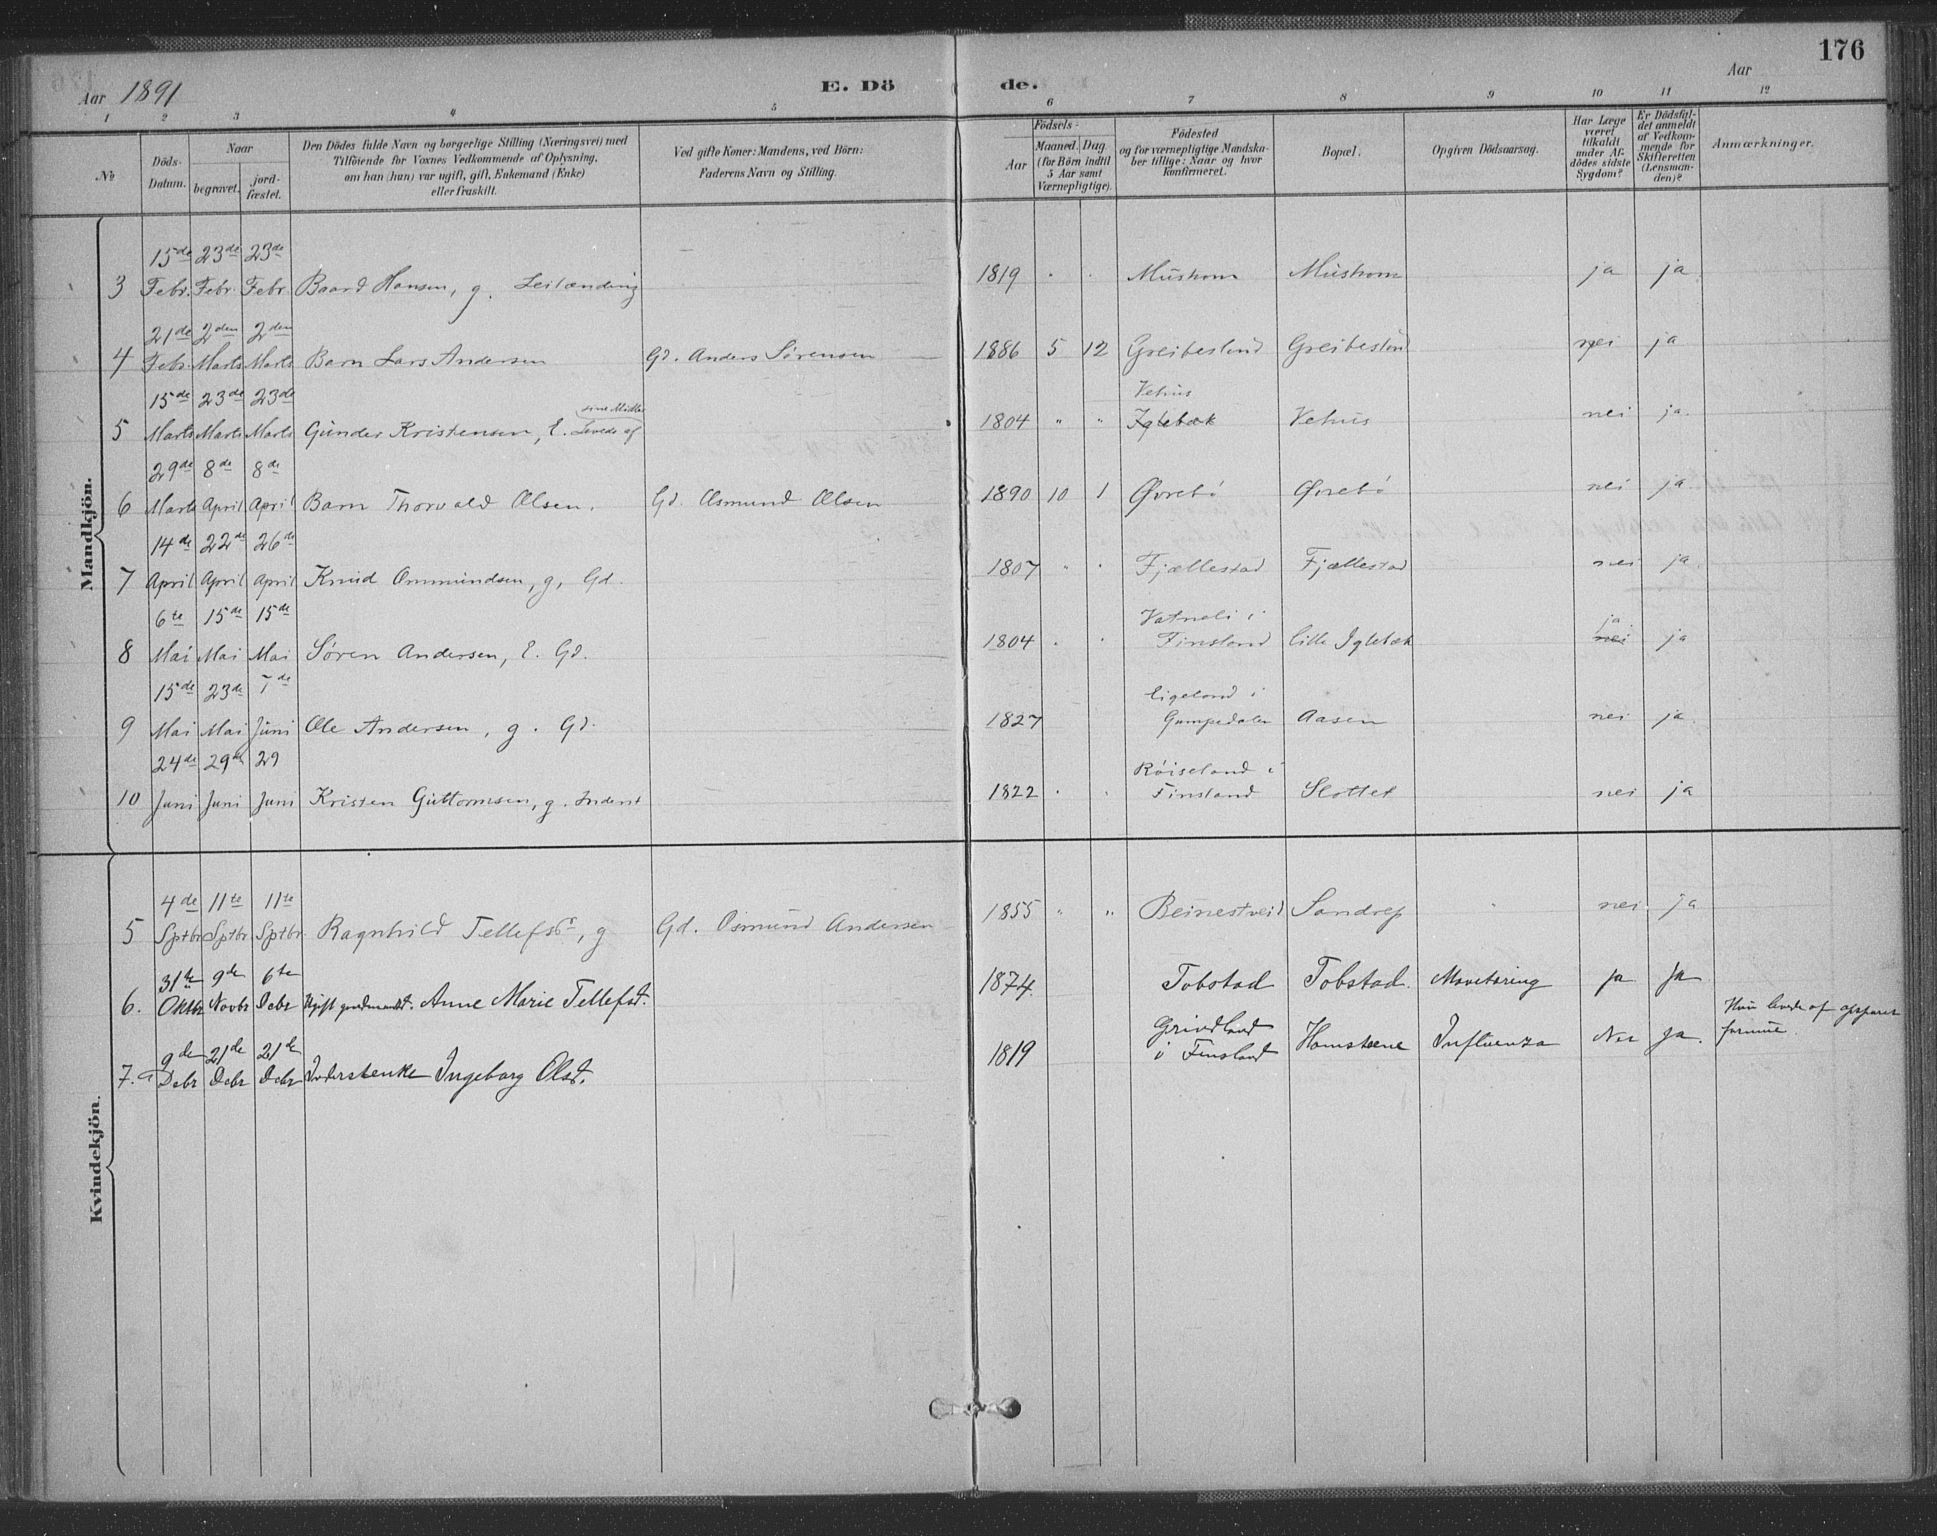 176
Aar 1891 E. Dö de. Aar
1 2 3 4 5 6 7 8 9 10 11 12
№
Döds-Datum.
Naar begravet. jordfæstet.
Den Dödes fulde Navn og borgerlige Stilling (Næringsvei) med
Tilföiende for Voxnes Vedkommende af Oplysning,
om han (hun) var ugift, gift, Enkemand (Enke)
eller fraskilt.
Ved gifte Koner: Mandens, ved Börn:
Faderens Navn og Stilling.
Födsels-
Aar
Maaned. Dag
(for Börn indtil
5 Aar samt
Værnepligtige).
Födested
og for værnepligtige Mandska-
ber tillige: Naar og hvor
konfirmeret.
Bopæl.
Opgiven Dödsaarsag.
Har Læge
været
tilkaldt
under Af-
dödes sidste
Sygdom?
Er Dödsfal-
det anmeldt
af Vedkom-
mende for
Skifteretten
(Lensman-
den)?
Anmærkninger.
Mandkjön.
3 15de Febr. 23de Febr. 23de Febr. Baard Hansen, g. Leilænding 1819 Mushom Mushom ja ja
4 21de Febr. 2den Marts 2den Marts Barn Lars Andersen Gd. Anders Sörensen 1886 5 12 Greibesland Greibesland nei ja
5 15de Marts 23de Marts 23de Marts Gunder Kristensen, E. Levede af sine Midler 1804 " " Vehus Iglebæk Vehus nei ja
6 29de Marts 8de April 8de April Barn Thorvald Olsen. Gd. Osmund Olsen 1890 10 1 Øvrebö Øvrebö nei ja
7 14de April 22de April 26de April Knud Ommundsen, g, Gd. 1807 " " Fjællestad Fjællestad nei ja
8 6te Mai 15de Mai 15de Mai Sören Andersen, E. Gd. 1804 Vatneli i Finsland Lille Iglebæk ja nei ja
9 15de Mai 23de Mai 7de Juni Ole Andersen, g. Gd. 1827 Eigeland i Aasen nei ja
10 24de Juni 29de Juni 29 Juni Kristen Guttormsen, g. Inderst 1822 Röiseland i Finsland Slottet nei ja
Kvindekjön.
5 4de Sptbr 11te Sptbr. 11te Sptbr. Ragnhild Tellefsdr, g Gd. Osmund Andersen 1855 " " Beinestveid Sandrep nei ja
6. 31te Oktbr 9de Novbr 6te Debr Anne Marie Tellefsd. 1874. Tobstad Tobstad. Mavetæring ja Ja
7. 9de Debr 21de Debr 21de Debr Inderstenke Ingeborg Olsd. 1819 Grindland i Finsland Homsteene Influenza Nei Ja. Hun levede af opsparet formue.